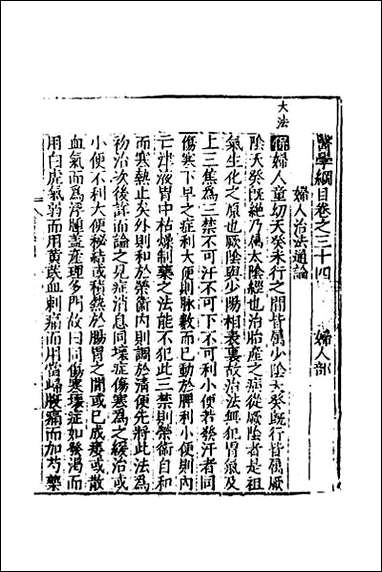 醫學綱目卷之三十四　婦人部
婦人治法通論
大法
保婦人童幼天癸未行之間皆屬少陰天癸旣行皆屬厥
陰天癸旣絶乃屬太陰經也治胎產之病從厥陰者是祖
氣生化之原也厥陰與少陽相表裏故治法無犯胃氣及
上三焦爲三禁不可汗不可下不可利小便若發汗者同
傷寒下早之症利大便則脉數而已動於脾利小便則內
亡津液胃中枯燥制藥之法能不犯此三禁則榮衛自和
而寒熱止矣外則和於榮衛內則調於清便先將此法爲
初治次後詳而論之見症消息同壞症傷寒爲之緩治或
小便不利大便秘結或積熱於腸胃之間或已成瘻或散
血氣而爲浮腫蓋產理多門故曰同傷寒壞症如發渴而
用白虎氣弱而用黃芪血刺痛而用當歸腹痛而加芍藥